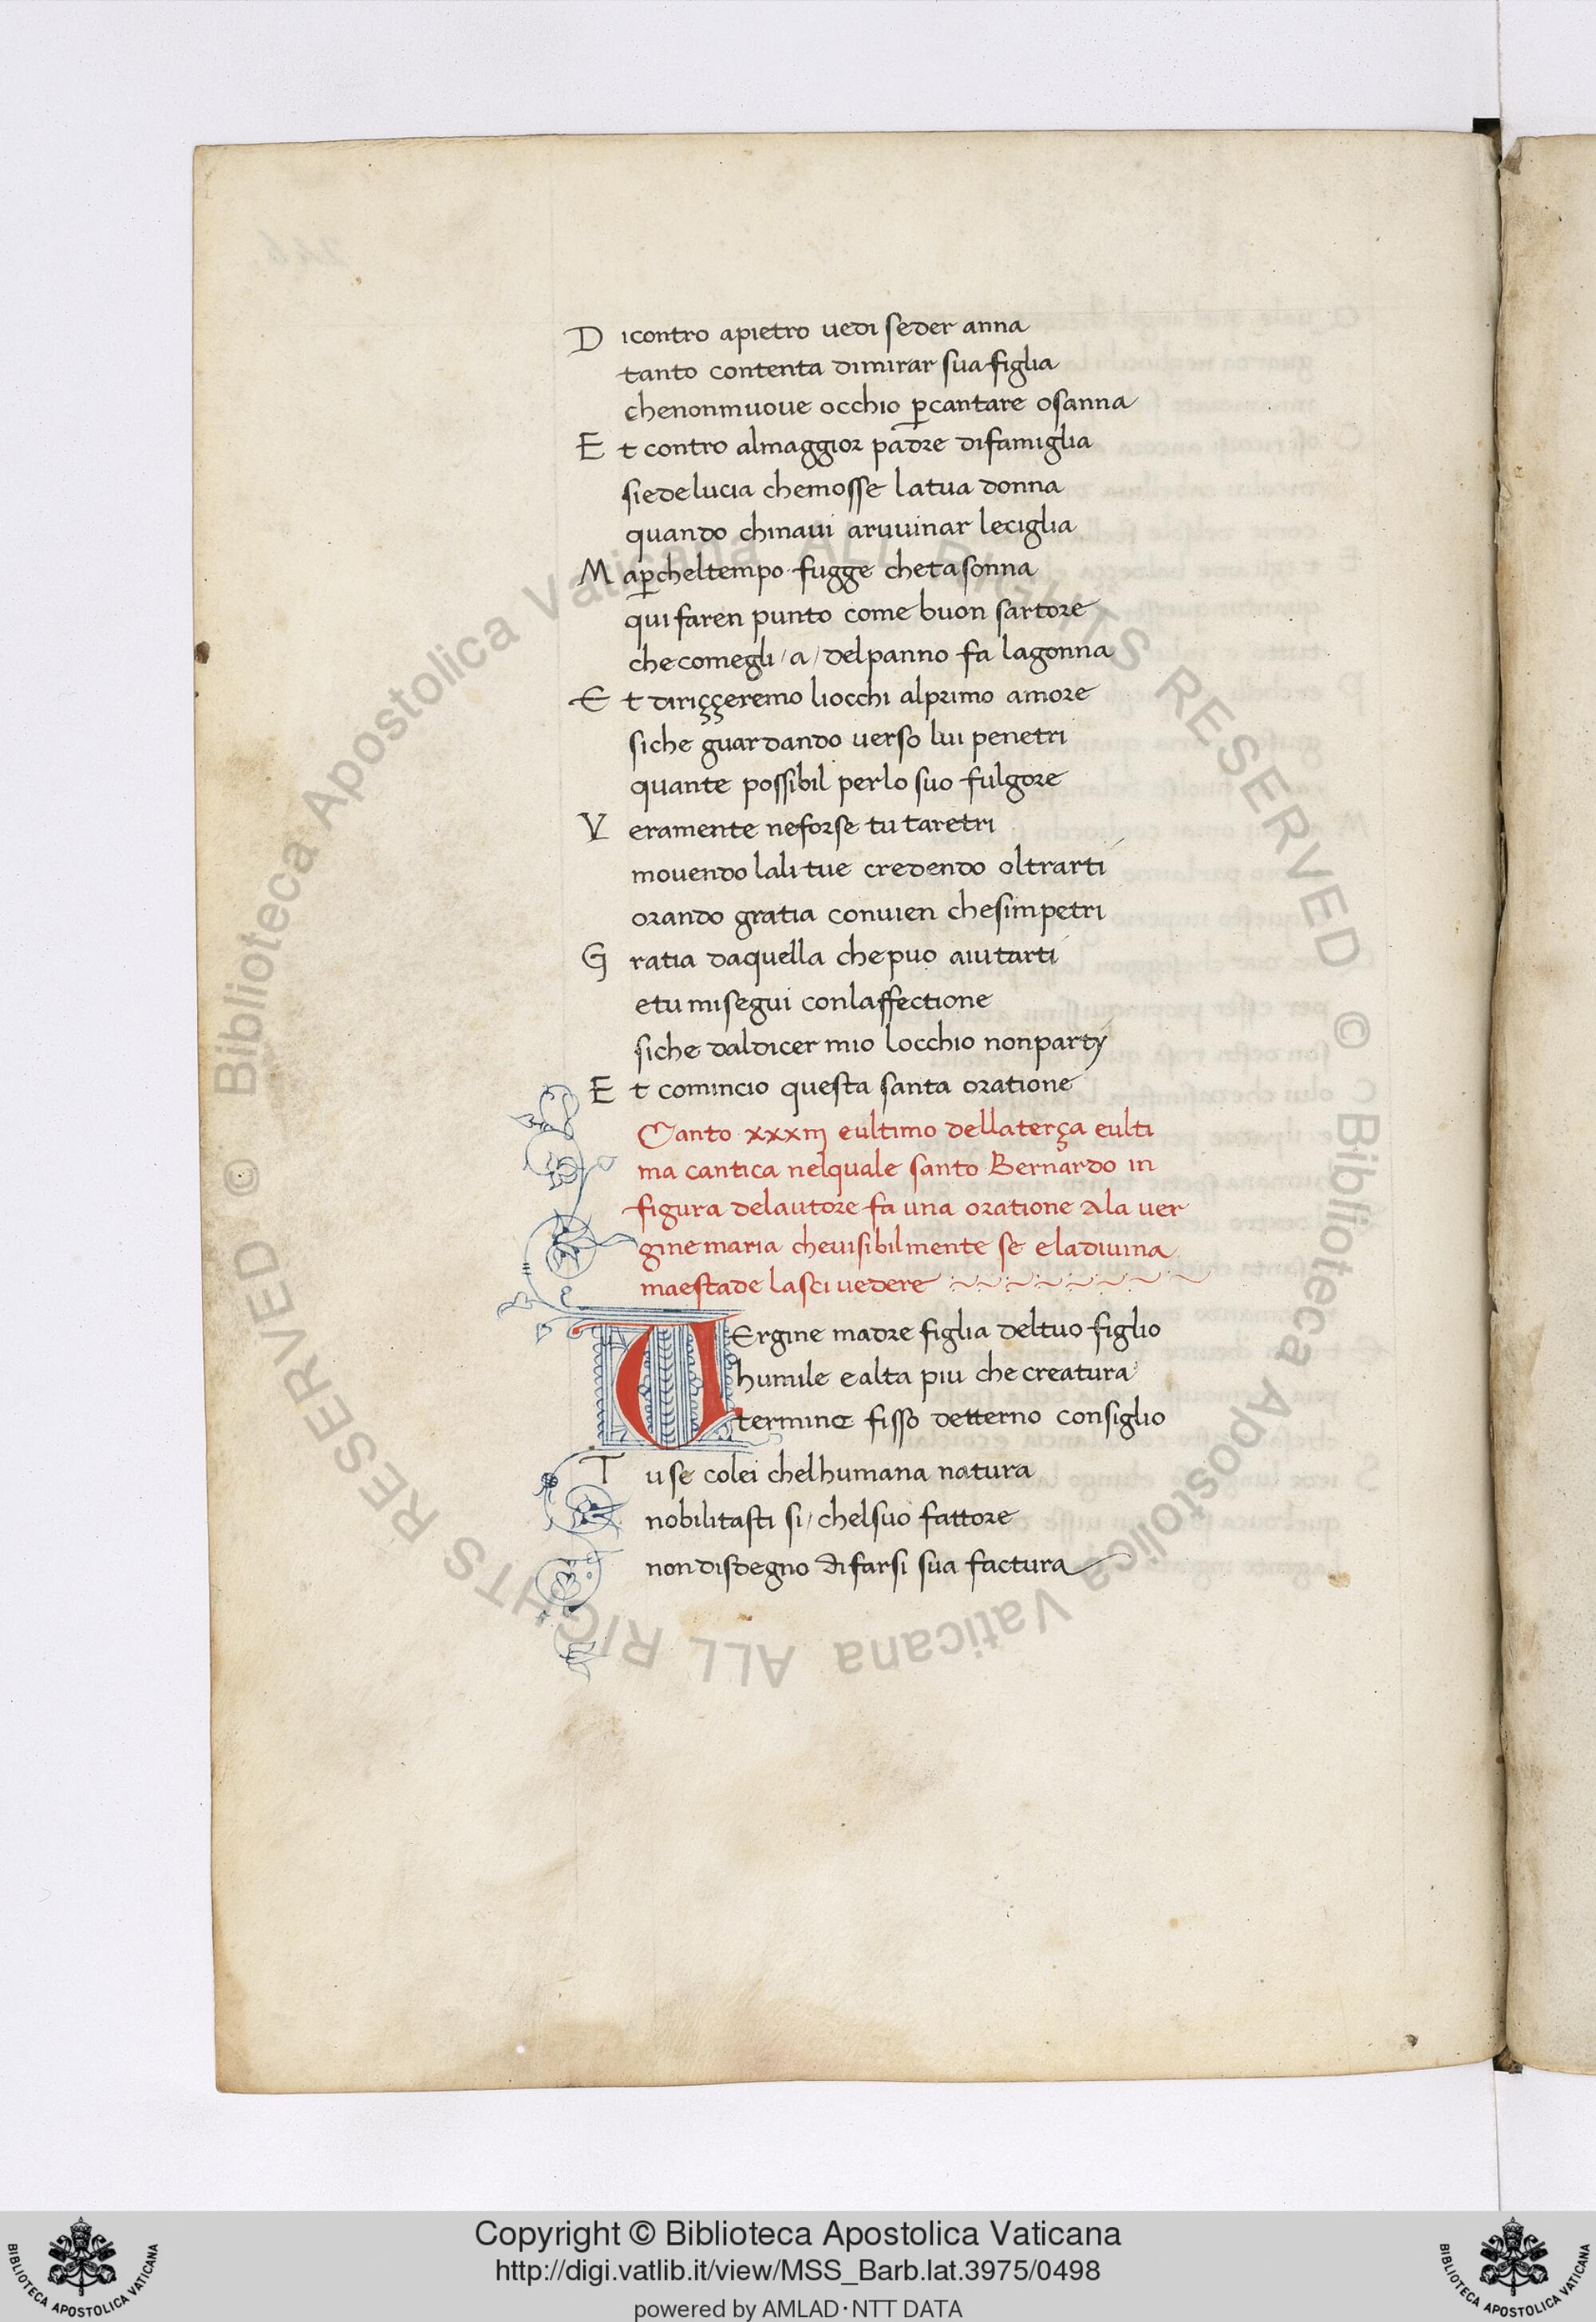 D icontro apietro uedi seder anna
tanto contenta dimirar sua figlia
chenonmuoue occhio ꝑcantare osanna
E t contro almaggior padre difamiglia
siede lucia chemosse latua donna
quando chinaui aruuinar leciglia
M aꝑcheltempo fugge chetasonna
qui faren punto come buon sartore
che comegli / a / delpanno fa lagonna
E t diriççeremo liocchi alprimo amore
siche guardando uerso lui penetri
quante possibil perlo suo fulgore
V eramente neforse tu taretri
mouendo lali tue credendo oltrarti
orando gratia conuien chesimpetri
G ratia daquella chepuo aiutarti
etu misegui conlaffectione
siche daldicer mio locchio nonparty
E t comincio questa santa oratione
Canto xxxiij eultimo dellaterça eulti
ma cantica nelquale santo Bernardo in
figura delautore fa una oratione ala uer
gine maria cheuisibilmente se eladiuina
maestade lasci uedere
VErgine madre figlia deltuo figlio
humile ealta piu che creatura
termine fisso detterno consiglio
T u se colei chelhumana natura
nobilitasti si / chelsuo fattore
nondisdegno difarsi sua factura
Biblioteca Apostolica Vaticana ALL RIGHTS RESERVED ©
Biblioteca Apostolica Vaticana ALL RIGHTS RESERVED ©
Copyright © Biblioteca Apostolica Vaticana
http://digi.vatlib.it/view/MSS_Barb.lat.3975/0498
powered by AMLAD·NTT DATA
BIBLIOTECA APOSTOLICA VATICANA
BIBLIOTECA APOSTOLICA VATICANA